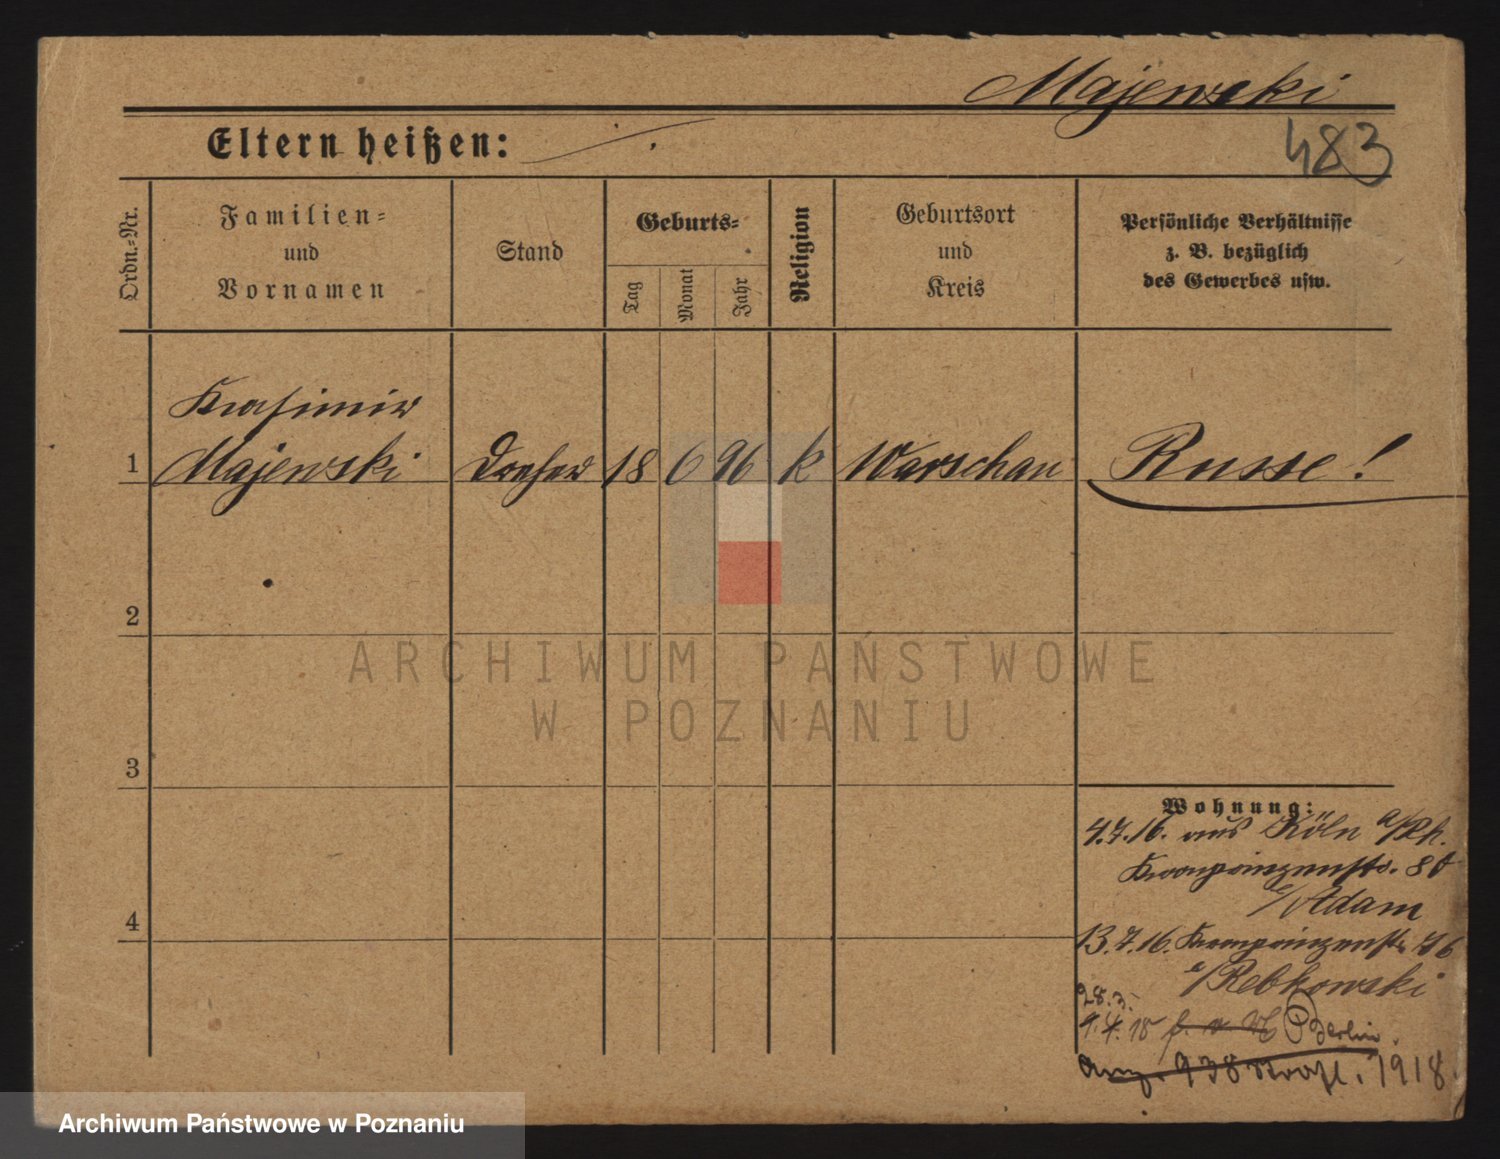 Majewski
483
Eltern heißen:
Ordn.-Nr.
Familien-
und
Vornamen
Stand
Geburts-
Tag
Monat
Jahr
Religion
Geburtsort
und
Kreis
Persönliche Verhältnisse
z. B. bezüglich
des Gewerbes usw.
Kasimir
1 Majewski Dreher 18 6 96 k Warschau Russe!
2
3
4
Wohnung:
4.7.16. aus Köln a/Rh.
Kronprinzenstr. 80
b/Adam
13.7.16. Kronprinzenstr. 76
b/Rebkowski
28.3.
9.4.18 Berlin.
Anz. 938 1918
ARCHIWUM PAŃSTWOWE
W POZNANIU
Archiwum Państwowe w Poznaniu